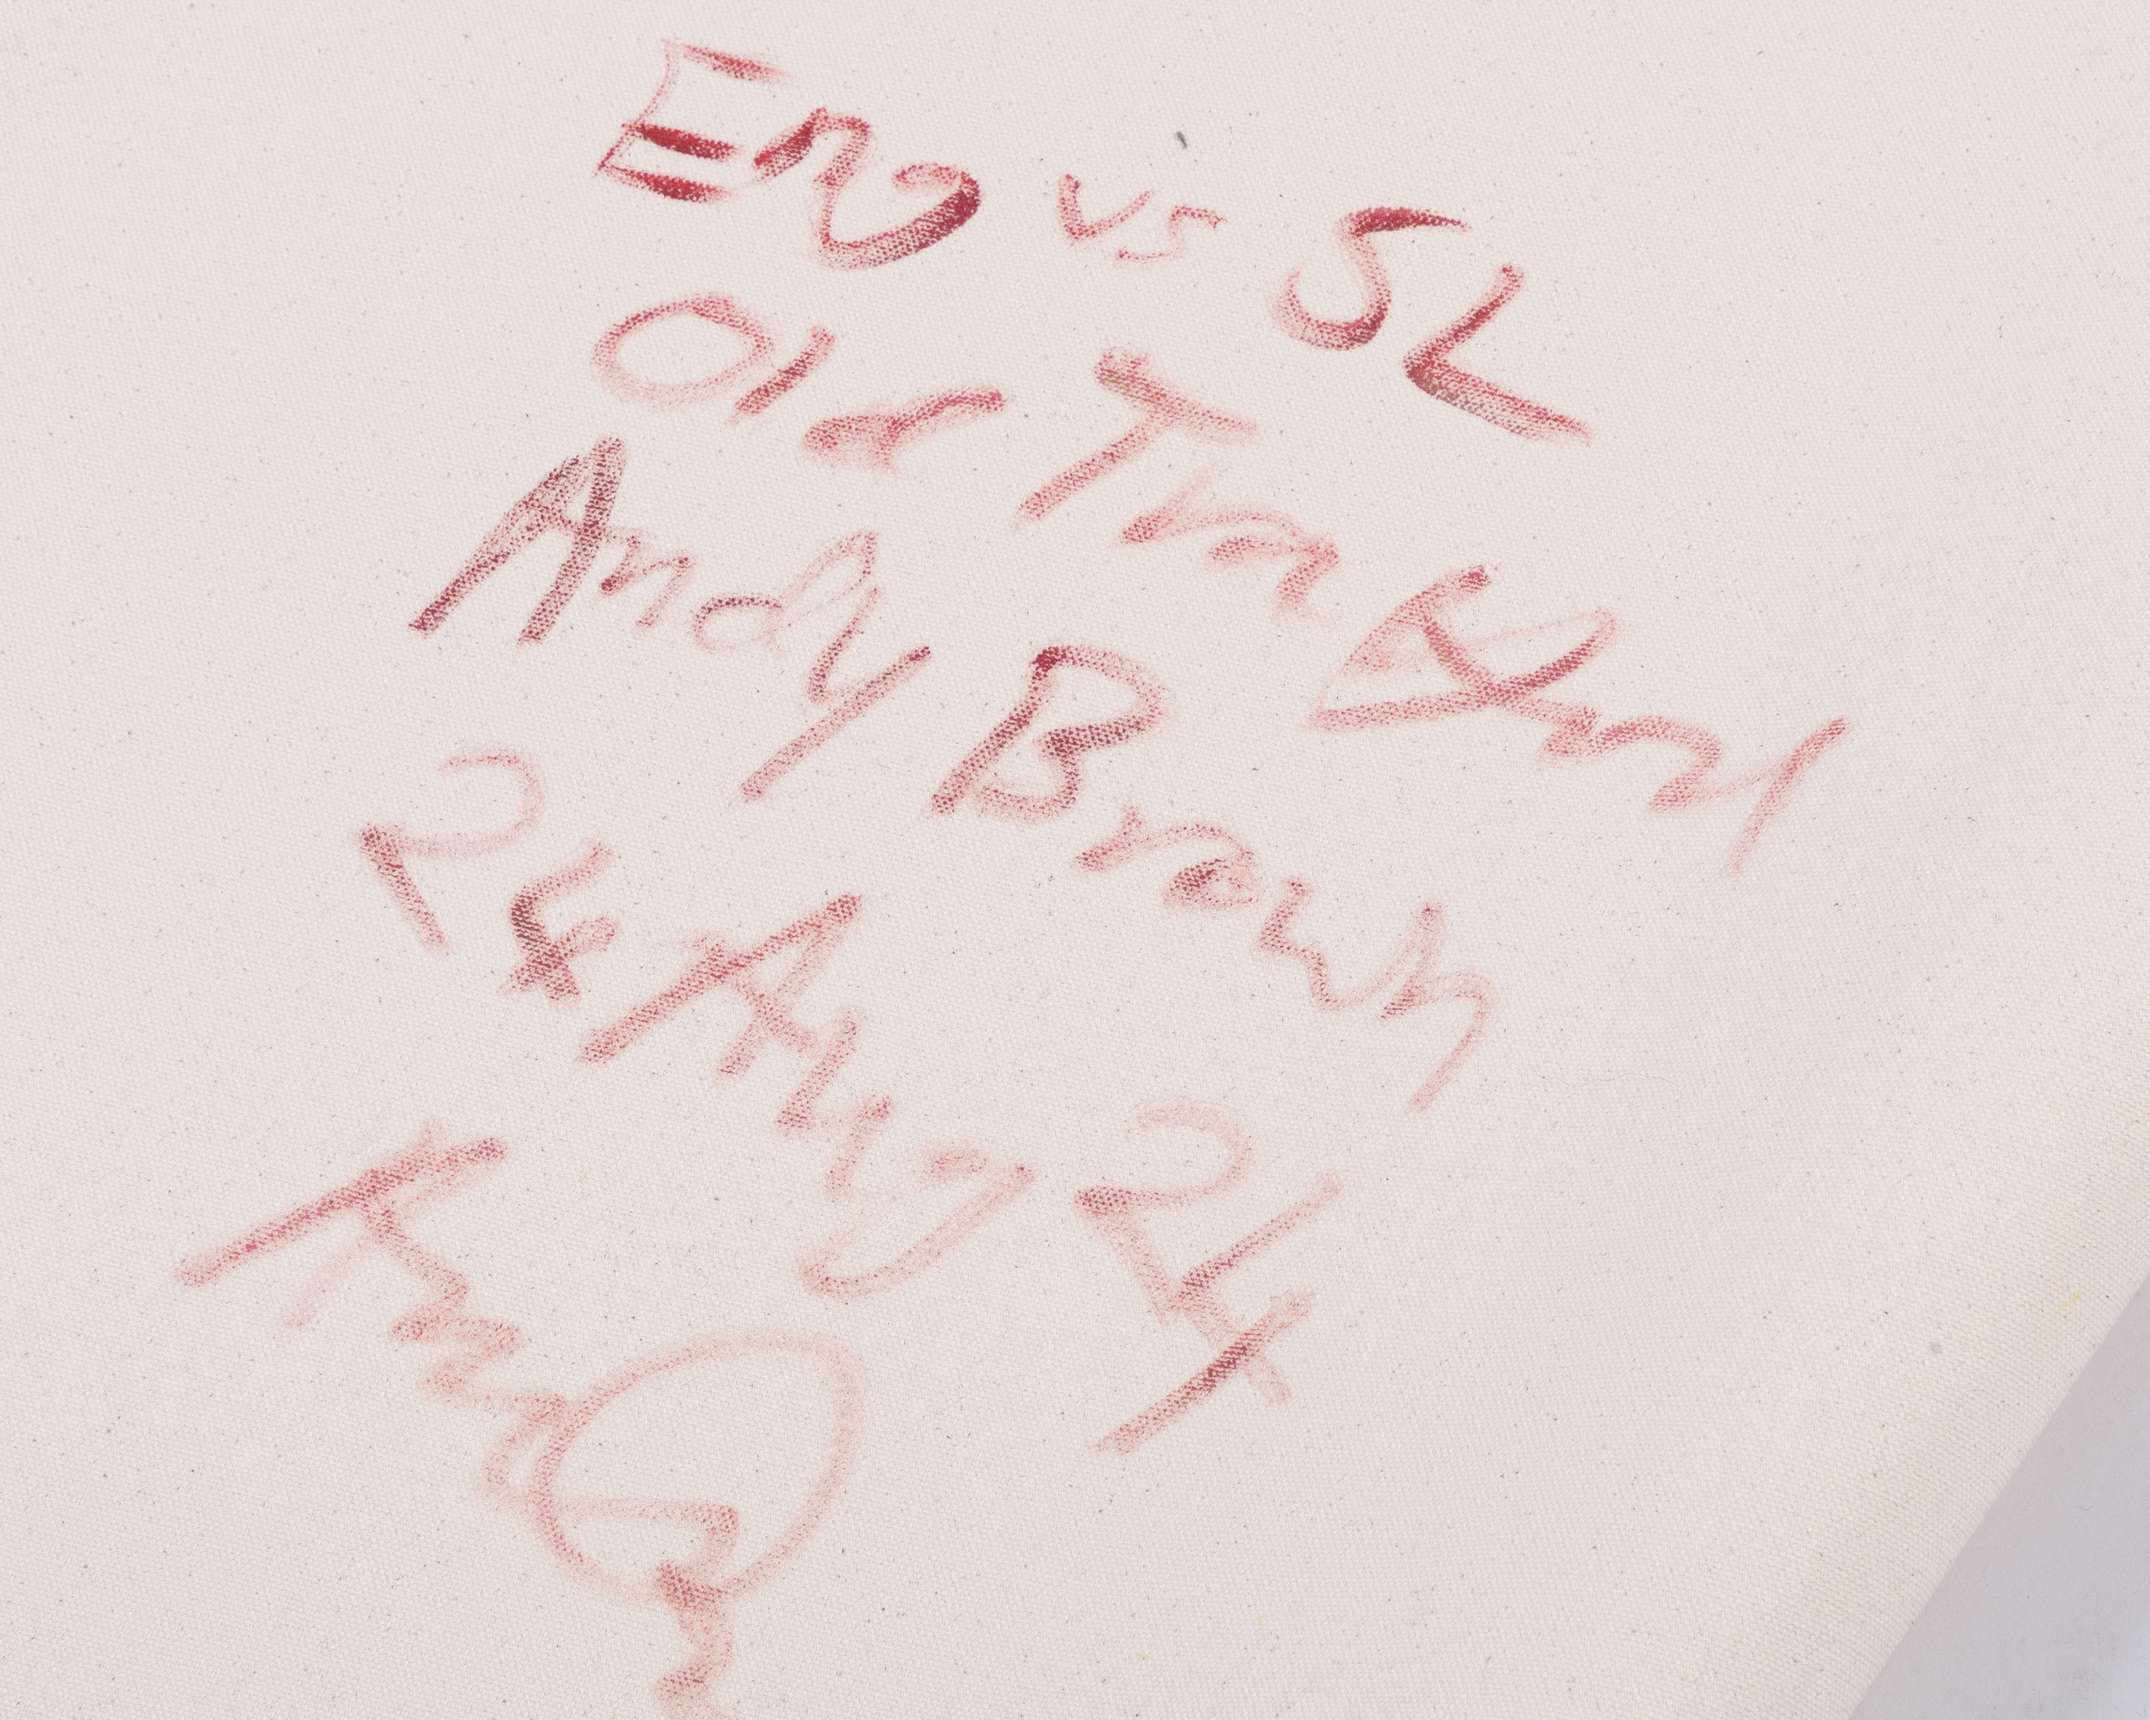 Eng vs SL
Old Trafford
Andy Brown
24 Aug 24